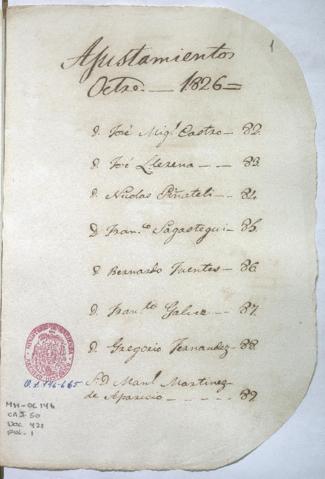 1
Ajustamientos
Octre. — 1826 =
D. José Migl. Castro — 82.
D. José Llerena — — 83.
D. Nicolas Piñateli — 84.
D. Fran.co Sagastegui — 85.
D. Bernardo Fuentes — 86
D. Fran.co Galvez — 87.
D. Gregorio Fernandez — 88
D. Manl. Martinez
de Aparicio — — — — 89
O.L. 146-665
MH-OL 146
CAJ. 50
DOC. 421
FOL. 1